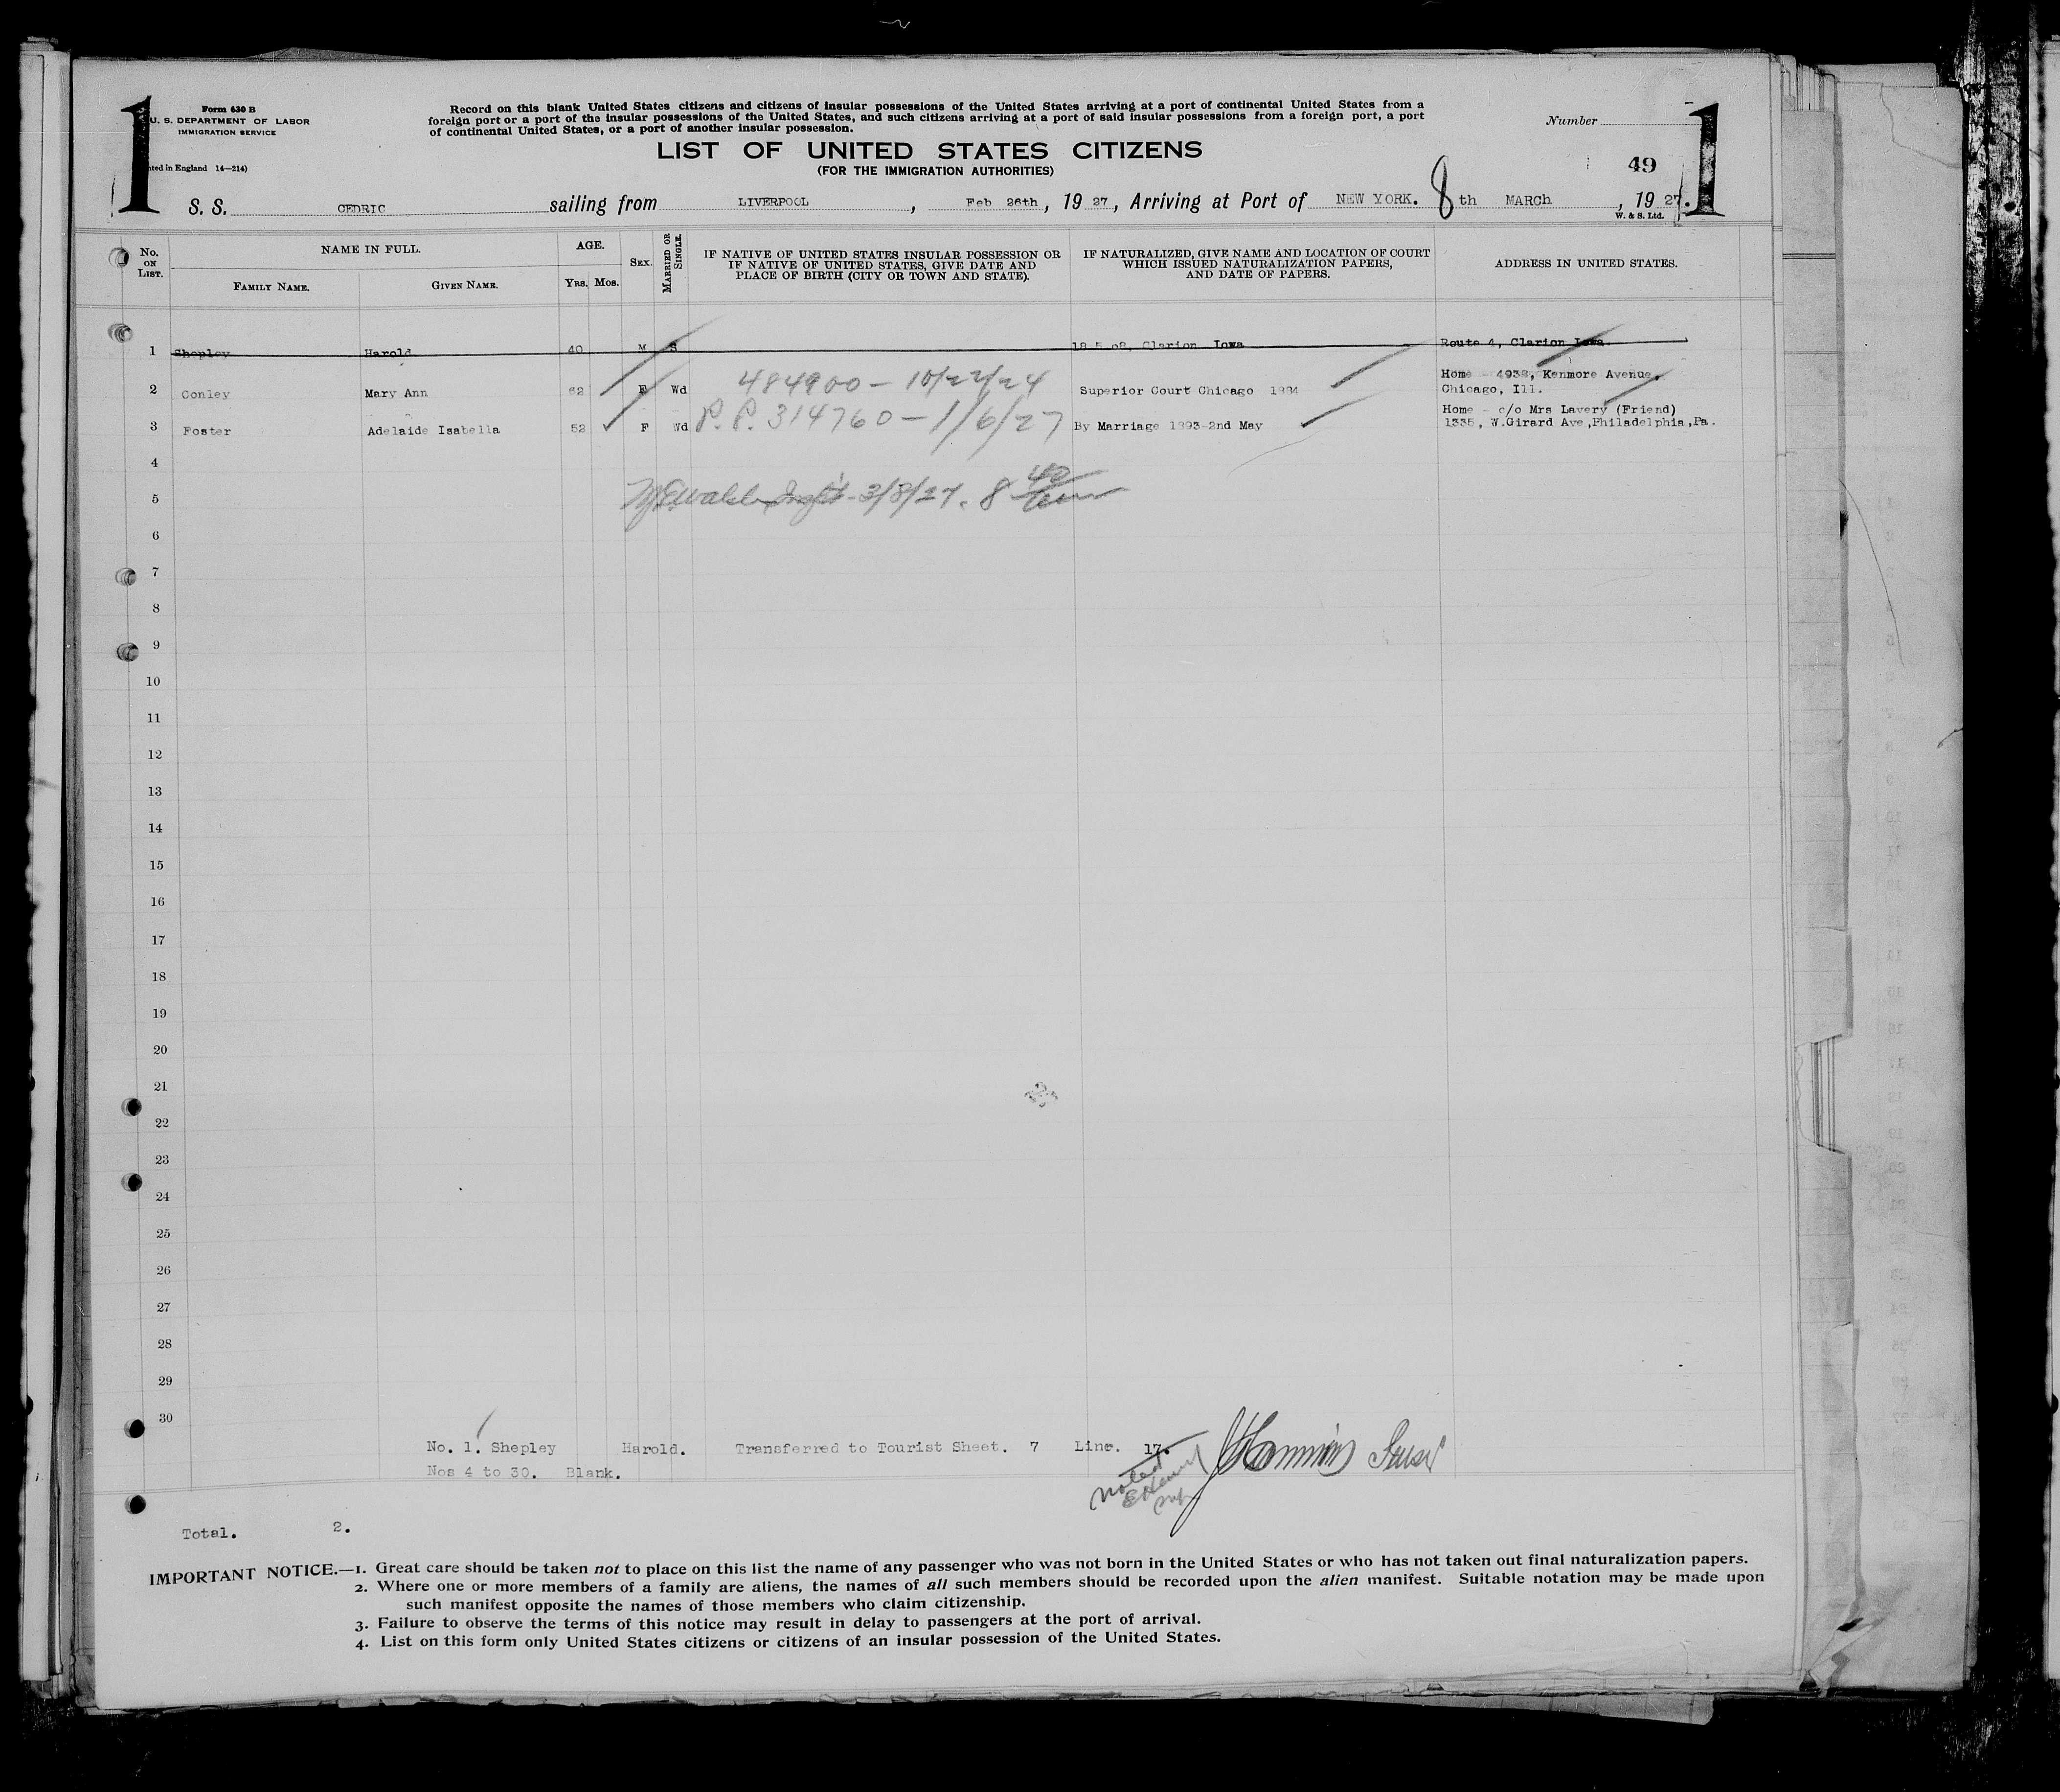 1
Form 630 B
U. S. DEPARTMENT OF LABOR
IMMIGRATION SERVICE
ted in England 14—214)
Record on this blank United States citizens and citizens of insular possessions of the United States arriving at a port of continental United States from a
foreign port or a port of the insular possessions of the United States, and such citizens arriving at a port of said insular possessions from a foreign port, a port
of continental United States, or a port of another insular possession.
LIST OF UNITED STATES CITIZENS
(FOR THE IMMIGRATION AUTHORITIES)
Number
49
1
S. S. CEDRIC sailing from LIVERPOOL, Feb 26th, 19 27, Arriving at Port of NEW YORK. 8th MARCH, 19 27.
W. & S. Ltd.
No. ON LIST.
NAME IN FULL.
FAMILY NAME. GIVEN NAME.
AGE.
YRS. MOS.
SEX.
MARRIED OR SINGLE.
IF NATIVE OF UNITED STATES INSULAR POSSESSION OR
IF NATIVE OF UNITED STATES, GIVE DATE AND
PLACE OF BIRTH (CITY OR TOWN AND STATE).
IF NATURALIZED, GIVE NAME AND LOCATION OF COURT
WHICH ISSUED NATURALIZATION PAPERS,
AND DATE OF PAPERS.
ADDRESS IN UNITED STATES.
1 Shepley Harold 40 M S 18.5.08, Clarion Iowa Route 4, Clarion Iowa.
2 Conley Mary Ann 62 F Wd 484900 - 10/22/24 Superior Court Chicago Home - 4938, Kenmore Avenue,
Chicago, Ill.
3 Foster Adelaide Isabella 52 F Wd P.P. 314760 - 1/6/27 By Marriage 1893-2nd May Home - c/o Mrs Lavery (Friend)
1335, W.Girard Ave,Philadelphia,Pa.
4
5 3/8/27. 8
6
7
8
9
10
11
12
13
14
15
16
17
18
19
20
21
22
23
24
25
26
27
28
29
30
No. 1. Shepley Harold. Transferred to Tourist Sheet. 7 Line. 17.
Nos 4 to 30. Blank.
Noted
Total. 2.
IMPORTANT NOTICE.—1. Great care should be taken not to place on this list the name of any passenger who was not born in the United States or who has not taken out final naturalization papers.
2. Where one or more members of a family are aliens, the names of all such members should be recorded upon the alien manifest. Suitable notation may be made upon
such manifest opposite the names of those members who claim citizenship.
3. Failure to observe the terms of this notice may result in delay to passengers at the port of arrival.
4. List on this form only United States citizens or citizens of an insular possession of the United States.